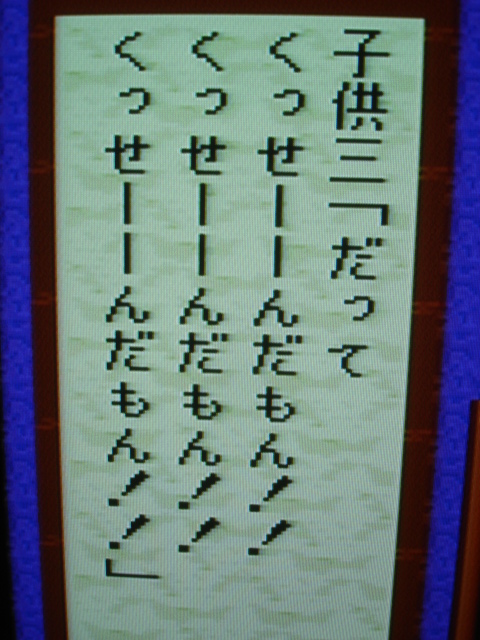 子供三「だって
くっせーーんだもん!!
くっせーーんだもん!!
くっせーーんだもん!!」